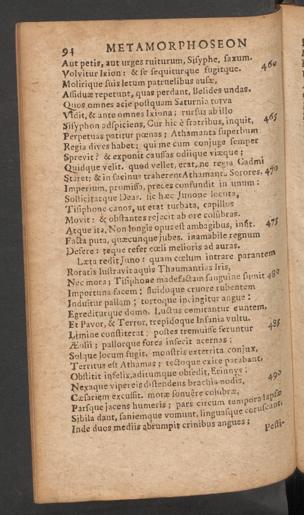 94 METAMORPHOSEON
Aut petis, aut urges ruiturum, Sisyphe, saxum.
Volvitur Ixion: & se sequiturque fugitque. 460
Molirique suis letum patruelibus ausæ,
Assiduæ repetunt, quas perdant, Belides undas.
Quos omnes acie postquam Saturnia torva
Vidit, & ante omnes Ixiona; rursus ab illo
Sisyphon adspiciens, Cur hic è fratribus, inquit, 465
Perpetuas patitur pœnas; Athamanta superbum
Regia dives habet; qui me cum conjuge semper
Sprevit? & exponit causas odiique viæque;
Quidque velit. quod vellet, erat, ne regia Cadmi
Staret; & in facinus traherent Athamanta Sorores. 470
Imperium, promissa, preces confundit in unum:
Sollicitatque Deas. sic hæc Junone locuta,
Tisiphone canos, ut erat turbata, capillos
Movit: & obstantes rejecit ab ore colubras.
Atque ita, Non longis opus est ambagibus, infit. 475
Facta puta, quæcunque jubes. inamabile regnum
Desere: teque refer cœli melioris ad auras.
Læta redit Juno: quam cœlum intrare parantem
Roratis lustravit aquis Thaumantias Iris,
Nec mora; Tisiphone madefactam sanguine sumit 480
Importuna facem; fluidoque cruore rubentem
Induitur pallam; tortoque incingitur angue:
Egrediturque domo. Luctus comitantur euntem,
Et Pavor, & Terror, trepidoque Insania vultu.
Limine constiterat: postes tremuisse feruntur 485
Æolii; pallorque fores infecit acernas;
Solque locum fugit. monstris exterrita conjux,
Territus est Athamas; tectoque exire parabant:
Obstitit infelix, aditumque obsedit, Erinnys:
Nexaque vipereis distendens brachia nodis, 490
Cæsariem excussit. motæ sonuêre colubræ,
Parsque jacens humeris; pars circum tempora lapsæ
Sibila dant, saniemque vomunt, linguasque coruscant.
Inde duos mediis abrumpit crinibus angues;
Pesti-